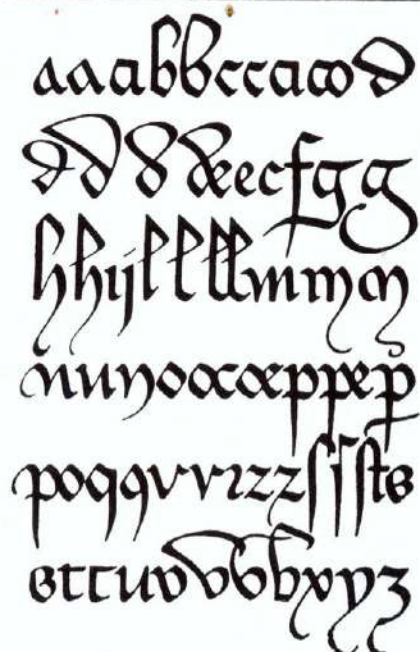 aaabbccacod
ddddeecfgg
hhijllllmmm
nunoocœppep
poqqvvꝛzzſſſts
sttuvvbbxyz